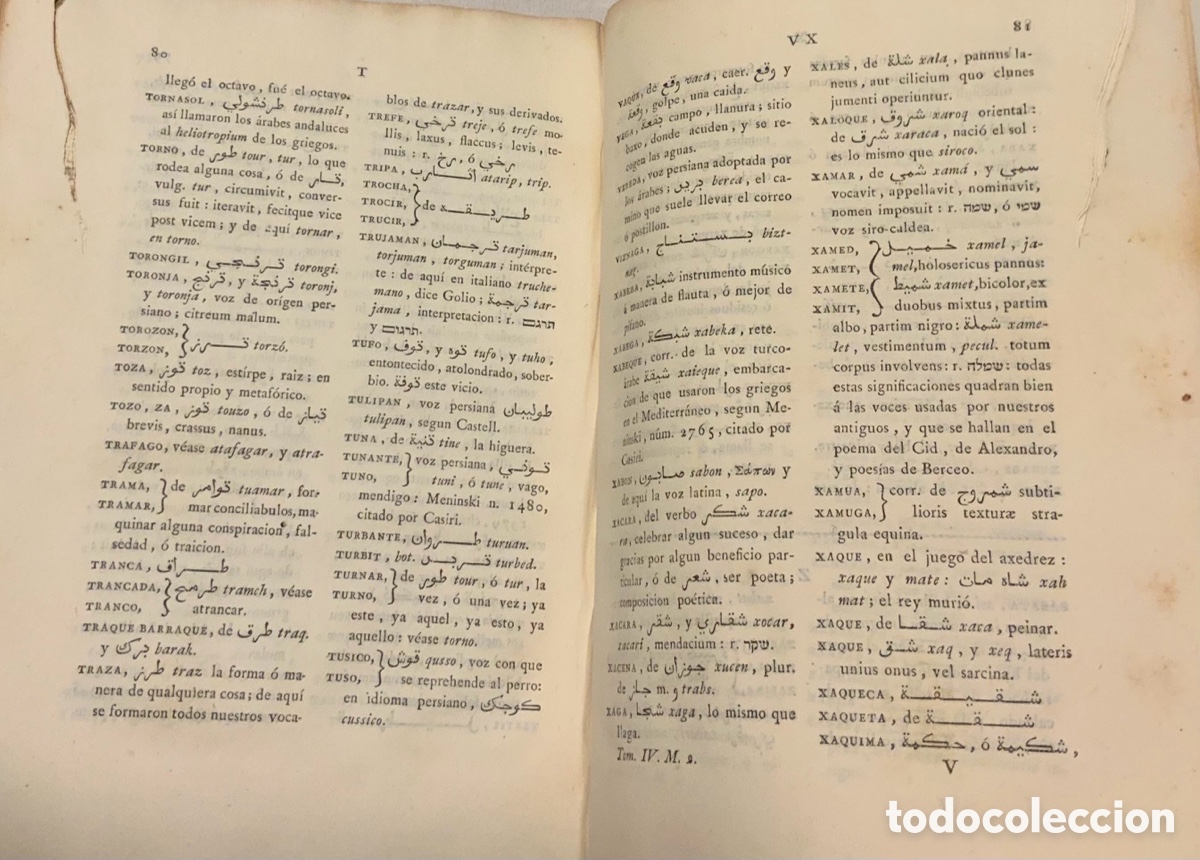 80
T
llegó el octavo, fué el octavo.
TORNASOL, طرنشولي tornasoli,
así llamaron los árabes andaluces
al heliotropium de los griegos.
TORNO, de طور tour, tur, lo que
rodea alguna cosa, ó de تار,
vulg. tur, circumivit, conver-
sus fuit: iteravit, fecitque vice
post vicem; y de aquí tornar,
en torno.
TORONGIL, ترنجي torongi.
TORONJA, ترنج, y ترنجة toronj,
y toronja, voz de orígen per-
siano; citreum malum.
TOROZON,
TORZON, torzó.
TOZA, توز toz, estírpe, raiz; en
sentido propio y metafórico.
TOZO, ZA, توز touzo, ó de تياز
brevis, crassus, nanus.
TRAFAGO, véase atafagar, y atra-
fagar.
TRAMA, de توامر tuamar, for-
TRAMAR, mar conciliabulos, ma-
quinar alguna conspiracion, fal-
sedad, ó traicion.
TRANCA, طراف
TRANCADA, طرمح tramch, véase
TRANCO, atrancar.
TRAQUE BARRAQUE, de طرق traq.
y برك barak.
TRAZA, طرز traz la forma ó ma-
nera de qualquiera cosa; de aquí
se formaron todos nuestros voca-
blos de trazar, y sus derivados.
TREFE, ترخي treje, ó trefe mo-
llis, laxus, flaccus; levis, te-
nuis: r. رخ, ó رخي
TRIPA, اثارب atarip, trip.
TROCHA,
TROCIR, de طريقة
TRUCIR,
TRUJAMAN, ترجمان tarjuman,
torjuman, torguman; intérpre-
te: de aquí en italiano truche-
mano, dice Golio; ترجمة tar-
jama, interpretacion: r. תרגם
y תרגום.
TUFO, توف, y توه tufo, y tuho,
entontecido, atolondrado, sober-
bio. توفة este vicio.
TULIPAN, voz persiana طوليبان
tulipan, segun Castell.
TUNA, de تينة tine, la higuera.
TUNANTE, voz persiana, توني
TUNO, tuni, ó tune, vago,
mendigo: Meninski n. 1480,
citado por Casiri.
TURBANTE, طروان turuan.
TURBIT, bot. تربد turbed.
TURNAR, de طور tour, ó tur, la
TURNO, vez, ó una vez; ya
este, ya aquel, ya esto, ya
aquello: véase torno.
TUSICO, قوش qusso, voz con que
TUSO, se reprehende al perro:
en idioma persiano, كوجك
cussico.
VX
81
VAQUE, de وقع vaca, caer. وقع y
وقعة, golpe, una caida.
VEGA, بقعة campo, llanura; sitio
baxo, donde acuden, y se re-
cogen las aguas.
VEREDA, voz persiana adoptada por
los árabes; بريد berea, el ca-
mino que suele llevar el correo
ó postillon.
VIZNAGA, بستناج bizt-
nag.
XABEBA, شبابة instrumento músico
á manera de flauta, ó mejor de
pífano.
XABEGA, شبكة xabeka, rete.
XABEQUE, corr. de la voz turco-
árabe شيقة xaieque, embarca-
cion de que usaron los griegos
en el Mediterráneo, segun Me-
ninski, núm. 2765, citado por
Casiri.
XABON, صابون sabon, Σάπων y
de aquí la voz latina, sapo.
XACARA, del verbo شكر xaca-
ra, celebrar algun suceso, dar
gracias por algun beneficio par-
ticular, ó de شعر, ser poeta;
composicion poética.
XACARA, شقر, y شقاري xocar,
xacari, mendacium: r. שקר.
XACENA, de جوزان xucen, plur.
de جاز m. و trabs.
XAGA, شجا xaga, lo mismo que
llaga.
Tom. IV. M. 2.
XALES, de شلة xala, pannus la-
neus, aut cilicium quo clunes
jumenti operiuntur.
XALOQUE, شروق xaroq oriental:
de شرق xaraca, nació el sol:
es lo mismo que siroco.
XAMAR, de شمي xamá, y سمي
vocavit, appellavit, nominavit,
nomen imposuit: r. שמה, ó שמי
voz siro-caldea.
XAMED, خميل xamel, ja-
XAMET, mel, holosericus pannus:
XAMETE, شميط xamet, bicolor, ex
XAMIT, duobus mixtus, partim
albo, partim nigro: شملة xame-
let, vestimentum, pecul. totum
corpus involvens: r. שמלה: todas
estas significaciones quadran bien
á las voces usadas por nuestros
antiguos, y que se hallan en el
poema del Cid, de Alexandro,
y poesías de Berceo.
XAMUA, corr. de شمروج subti-
XAMUGA, lioris texturæ stra-
gula equina.
XAQUE, en el juego del axedrez:
xaque y mate: شاه مات xah
mat; el rey murió.
XAQUE, de شقا xaca, peinar.
XAQUE, شق xaq, y xeq, lateris
unius onus, vel sarcina.
XAQUECA, شقيقة
XAQUETA, de شقة
XAQUIMA, حكمة, ó شكيمة,
V
todocoleccion